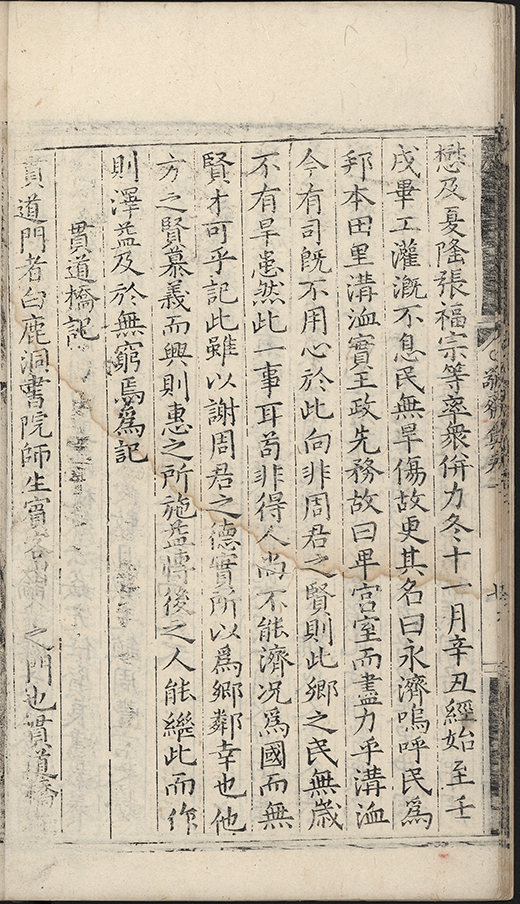 懋及夏隆張福宗等率衆併力冬十一月辛丑經始至壬
戌畢工灌溉不息民無旱傷故更其名曰永濟嗚呼民爲
邦本田里溝洫實王政先務故曰卑宮室而盡力乎溝洫
今有司旣不用心於此向非周君之賢則此鄉之民無歲
不有旱患然此一事耳苟非得人尚不能濟况爲國而無
賢才可乎記此雖以謝周君之德實所以爲鄉鄰幸也他
方之賢慕義而興則惠之所施益愽後之人能繼此而作
則澤益及於無窮焉爲記
貫道橋記
貫道門者白鹿洞書院師生賓客之門也貫道橋
敬齋集